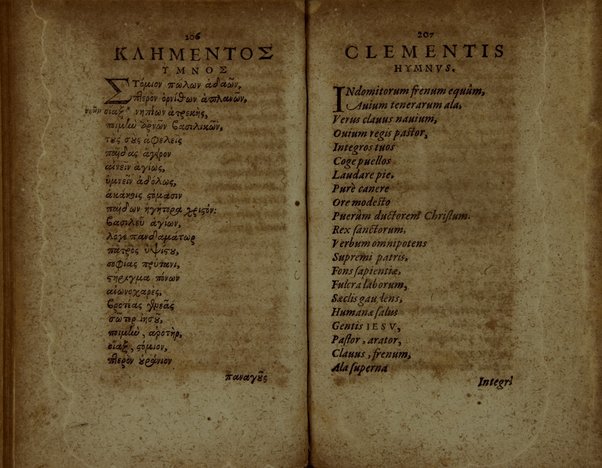 206
ΚΛΗΜΕΝΤΟΣ
ΥΜΝΟΣ
Στόμιον πώλων ἀδαῶν,
πτερὸν ὀρνίθων ἀπλανῶν,
οἴαξ νηπίων ἀτρεκὴς,
ποιμὴν ἀρνῶν βασιλικῶν,
τοὺς σοὺς ἀφελεῖς
παῖδας ἄγειρον
αἰνεῖν ἁγίως,
ὑμνεῖν ἀδόλως,
ἀκάκοις στόμασιν
παίδων ἡγήτορα χριστόν:
βασιλεῦ ἁγίων,
λόγε πανδαμάτωρ
πατρὸς ὑψίστου,
σοφίας πρύτανι,
στήριγμα πόνων
αἰωνοχαρὲς,
βροτέας γενεᾶς
σῶτερ ἰησοῦ,
ποιμὴν, ἀροτὴρ,
οἴαξ, στόμιον,
πτερὸν οὐράνιον
παναγοῦς
207
CLEMENTIS
HYMNVS.
INdomitorum frenum equûm,
Auium tenerarum ala,
Verus clauus nauium,
Ouium regis pastor,
Integros tuos
Coge puellos
Laudare pie.
Purè canere
Ore modesto
Puerûm ductorem Christum.
Rex sanctorum,
Verbum omnipotens
Supremi patris,
Fons sapientiæ,
Fulcra laborum,
Sæclis gaudens,
Humanæ salus
Gentis IESV,
Pastor, arator,
Clauus, frenum,
Ala superna
Integri